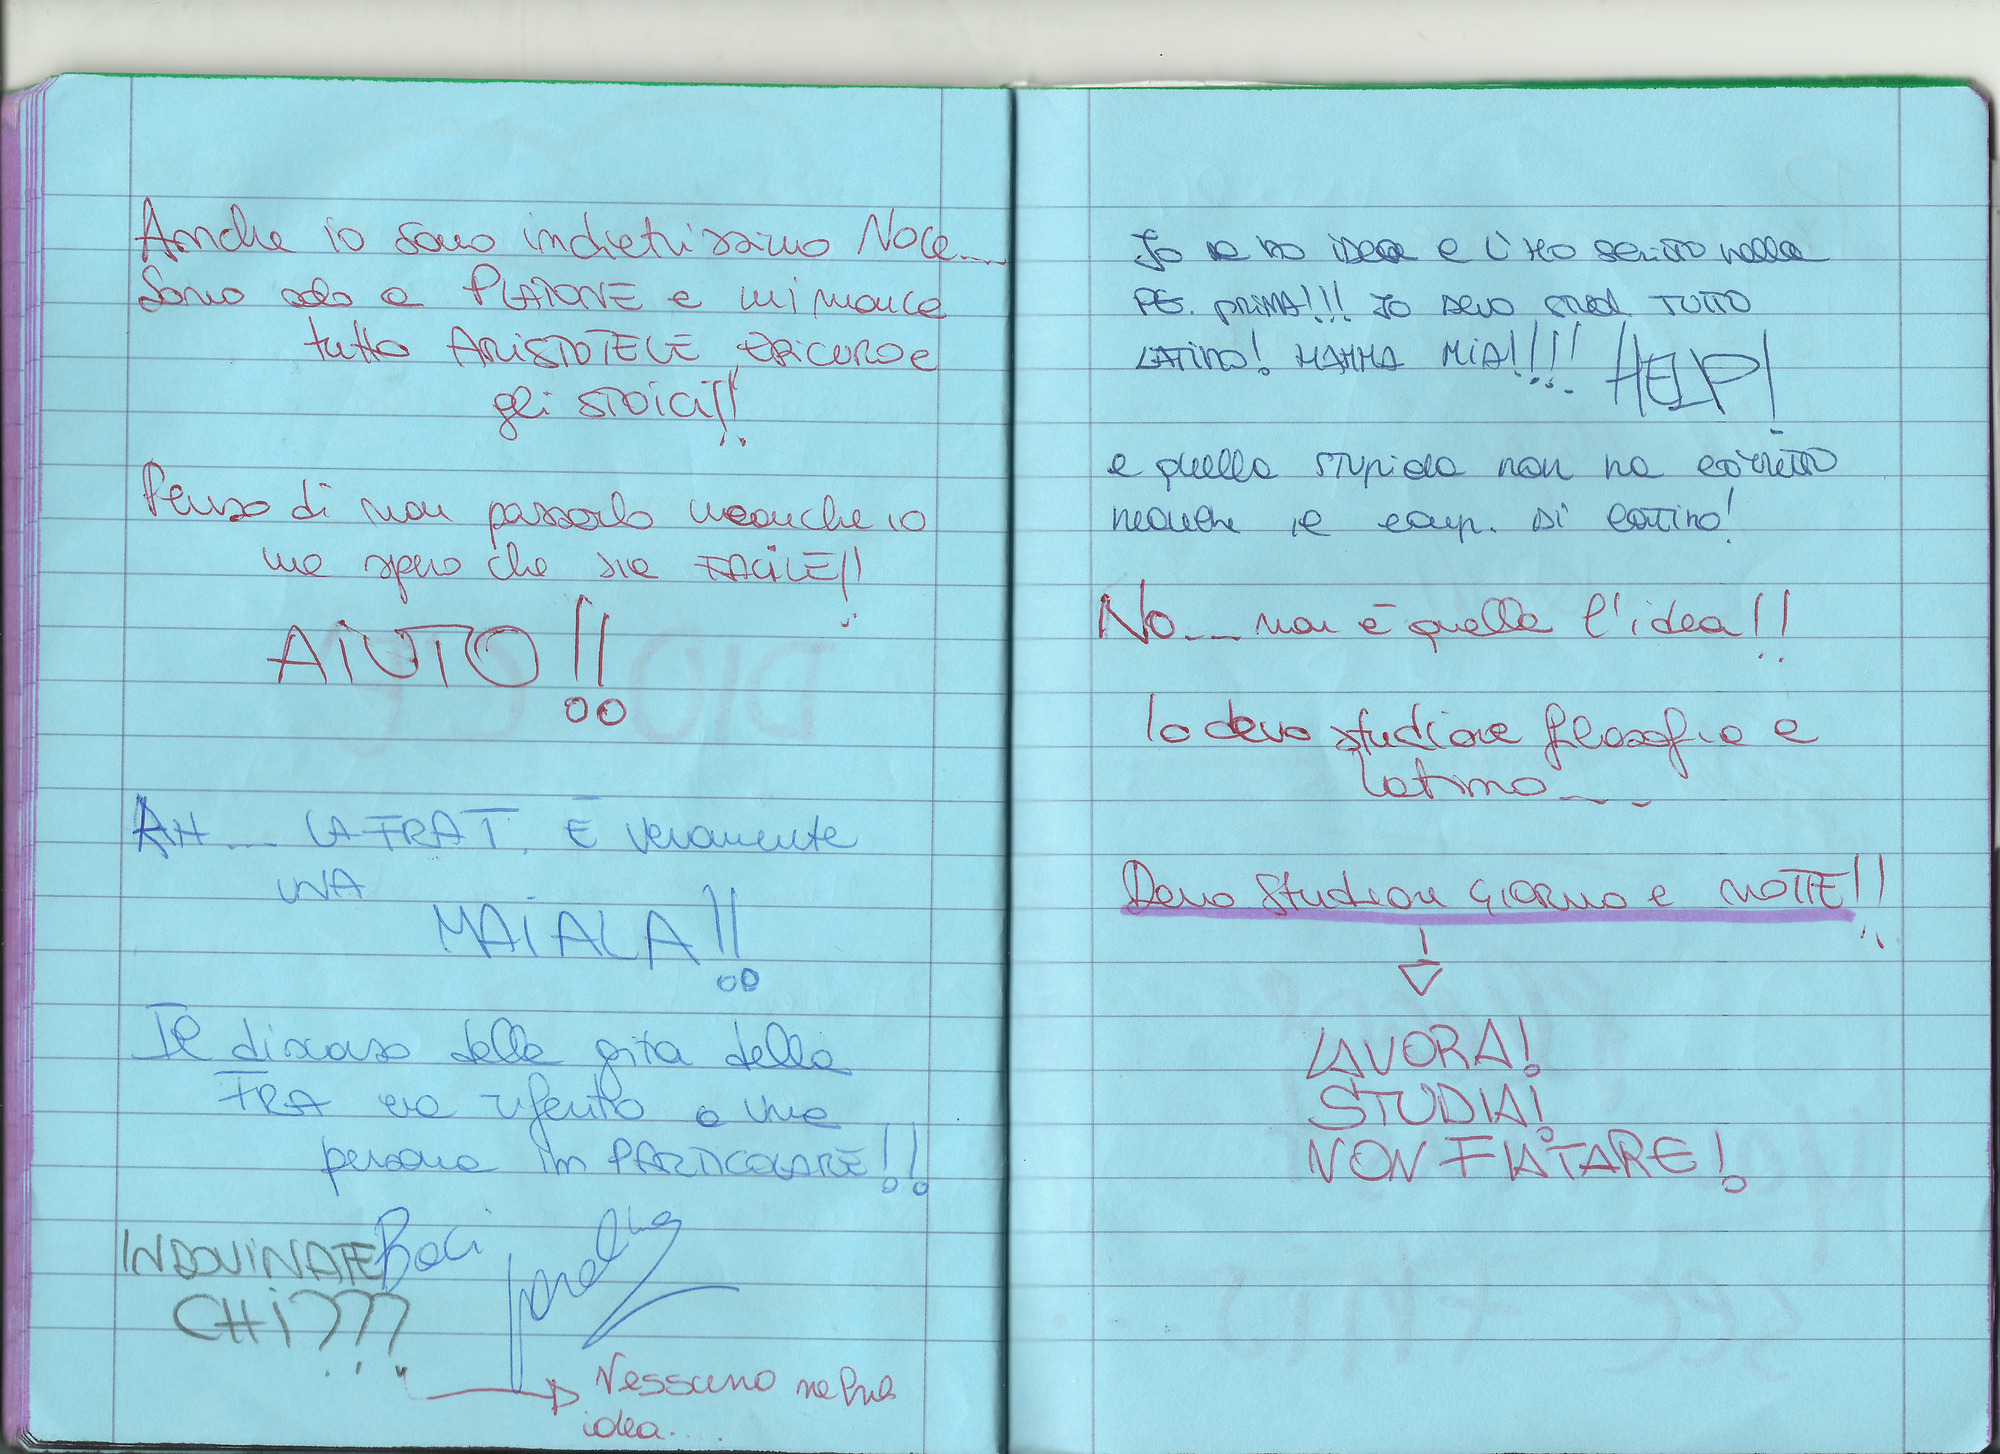 Anche io sono indietrissimo Noce....
Sono solo a PLATONE e mi manca
tutto ARISTOTELE, EPICURO e
gli STOICI!!
Penso di non passarlo neanche io
ma spero che sia FACILE!!
AIUTO!!
AH.... LA FRAT. È veramente
UNA
MAIALA!!
Il discorso della gita della
FRA era riferito a una
persona in PARTICOLARE!!
INDOVINATE Baci
CHI???
Nessuno ne ha
idea....
Io ne ho idea e l'ho scritto nella
PG. PRIMA!!! Io devo stud. TUTTO
LATINO! MAMMA MIA!!!! HELP!
e quella stupida non ha corretto
neanche le comp. di latino!
No.... non è quella l'idea!!
Io devo studiare filosofia e
latino....
Devo studiare GIORNO e NOTTE!!
LAVORA!
STUDIA!
NON FIATARE!